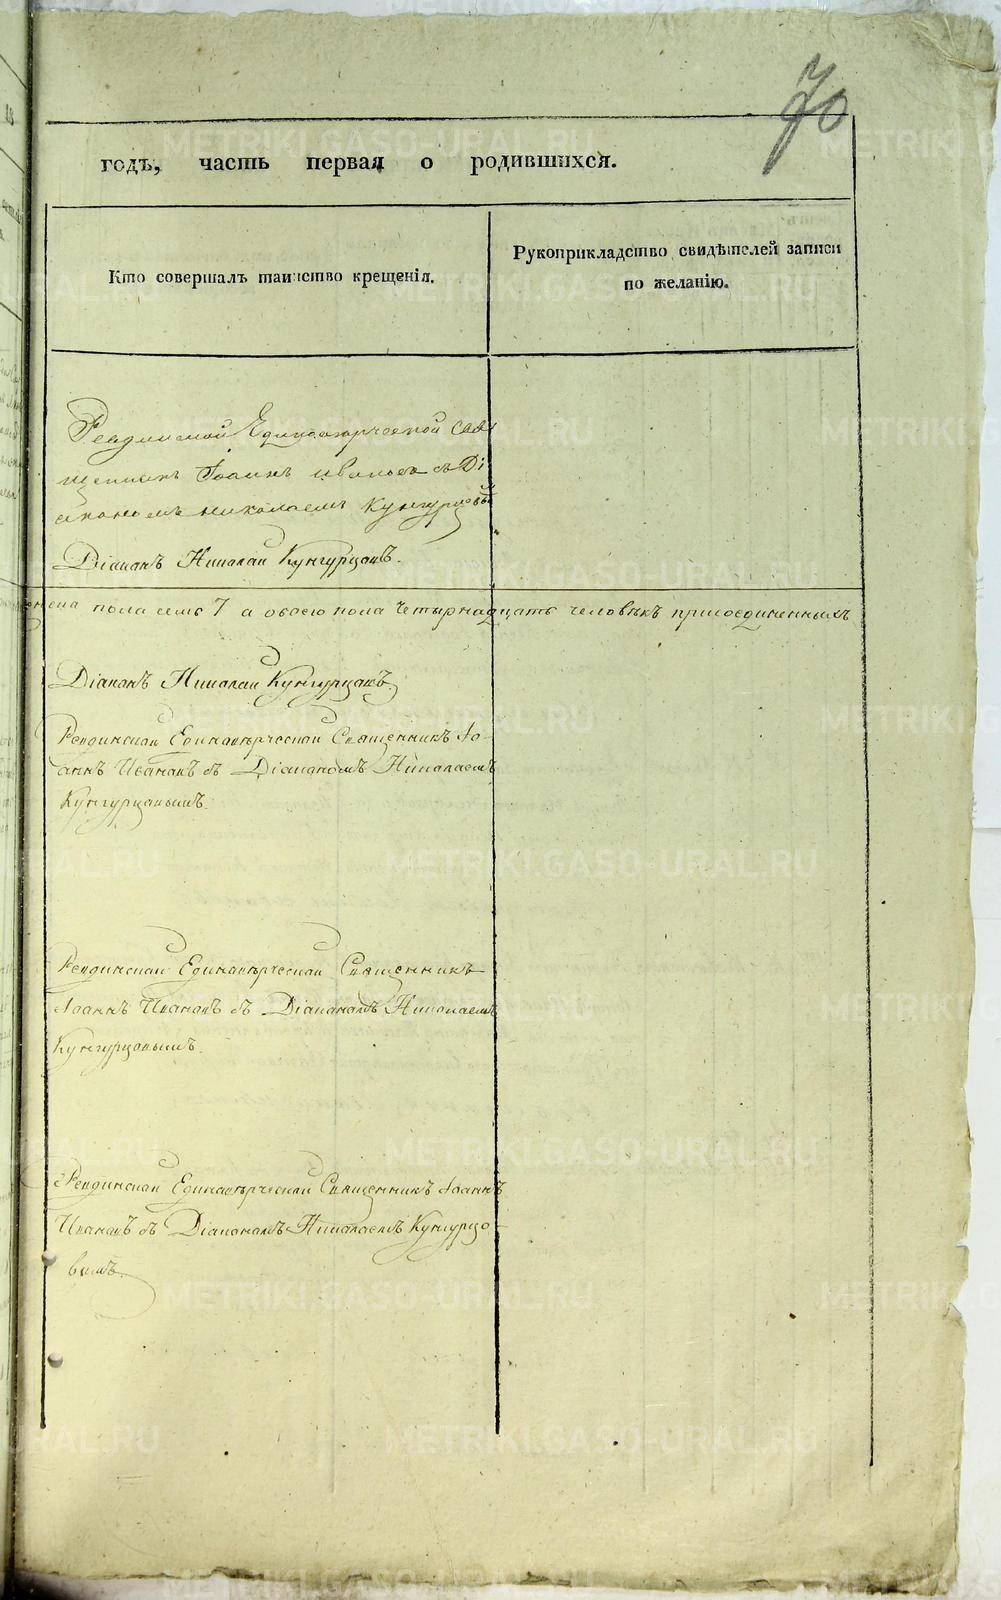 70
годъ, часть первая о родившихся.
Кто совершалъ таинство крещенія.
Рукоприкладство свидѣтелей записи
по желанію.
Ревдинской Единовѣрческой свя
щенникъ Іоаннъ Ивановъ съ Ді
акономъ Николаемъ Кунгурцовы
Діаконъ Николай Кунгурцовъ.
женска пола семь 7 а обоего пола четырнадцать человѣкъ присоединенныхъ
Діаконъ Николай Кунгурцовъ.
Ревдинскай Единовѣрческай Священникъ Іо-
аннъ Ивановъ съ Діакономъ Николаемъ
Кунгурцовымъ.
Ревдинскай Единовѣрческай Священникъ
Іоаннъ Ивановъ съ Діакономъ Николаемъ
Кунгурцовымъ.
Ревдинскай Единовѣрческай Священникъ Іоаннъ
Ивановъ съ Діакономъ Николаемъ Кунгурцо-
вымъ.
METRIKI.GASO-URAL.RU